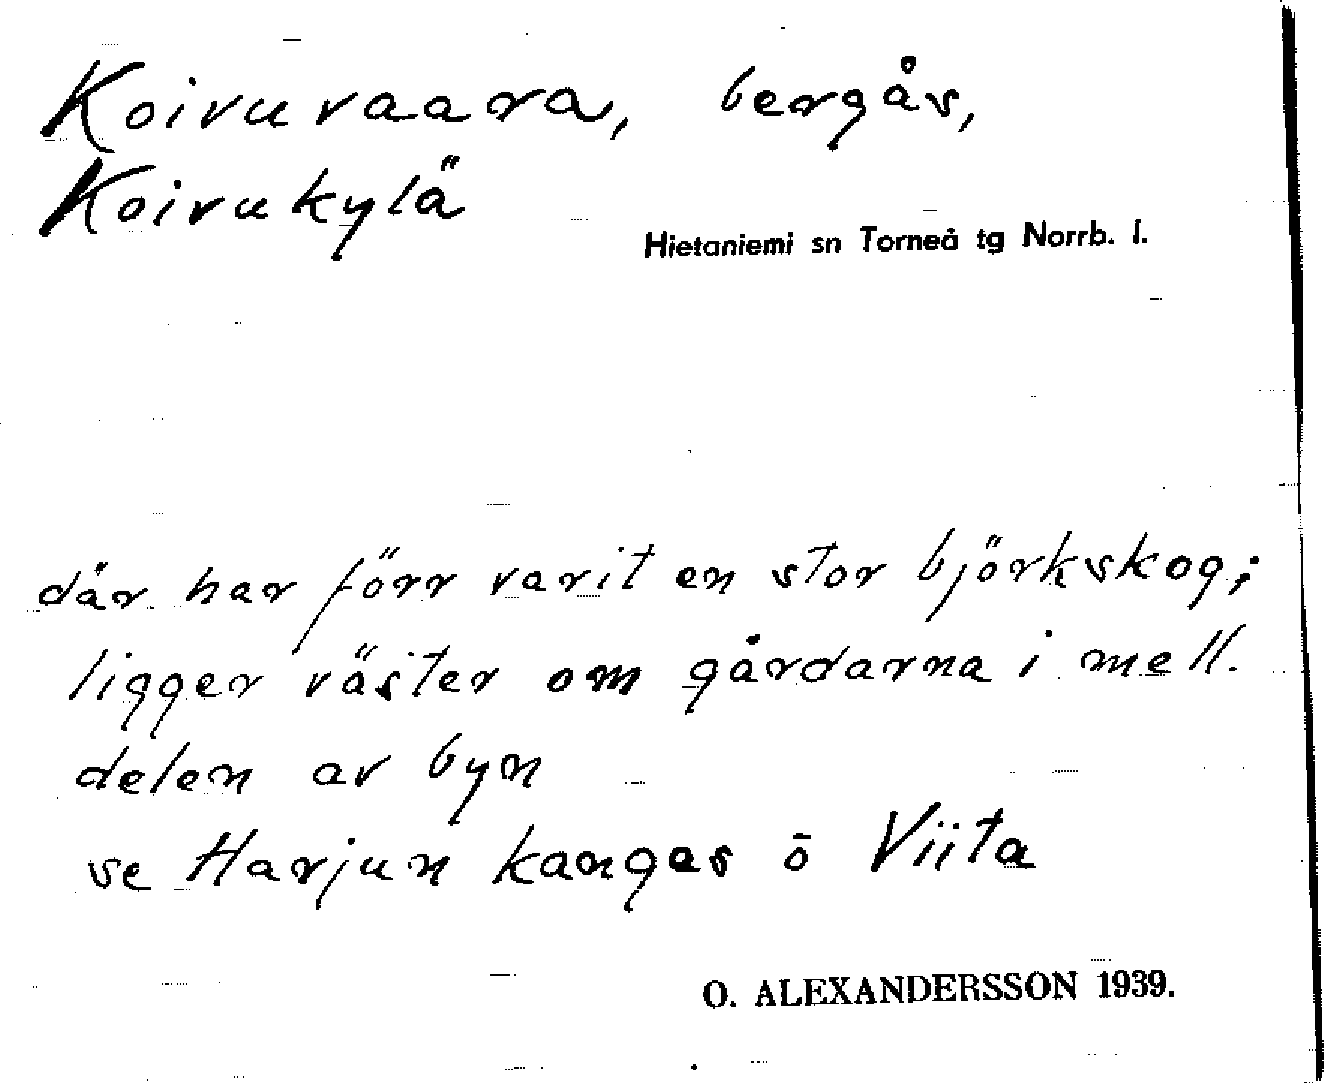 Koivuvaara, bergås,
Koivukylä
Hietaniemi sn Torneå tg Norrb. l.
där har förr varit en stor björkskog;
ligger väster om gårdarna i mell.
delen av byn
se Harjun kangas o Viita
O. ALEXANDERSSON 1939.